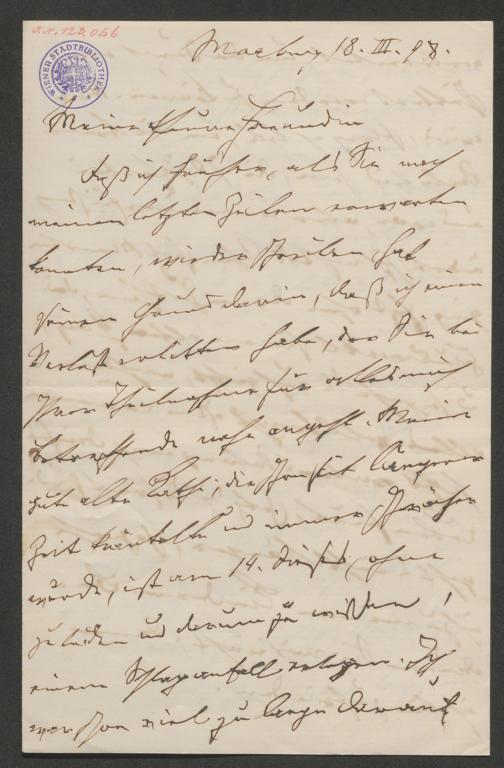 J.N. 122.056
WIENER STADTBIBLIOTHEK
Marburg 18. III. 98.
Meine theure Freundin
Daß ich früher, als Sie nach
meinen letzten Zeilen erwarten
konnten, wieder schreibe, hat
seinen Grund darin, daß ich einen
Verlust erlitten habe, der Sie bei
Ihrer Theilnahme für alles mich
betreffende nahe angeht. Meine
gute alte Kathi, die schon seit längerer
Zeit kränkelte und immer schwächer
wurde, ist am 14. dieses, ohne
zu leiden und darum zu wissen,
einem Schlaganfall erlegen. Ich
war schon viel zu lange darauf